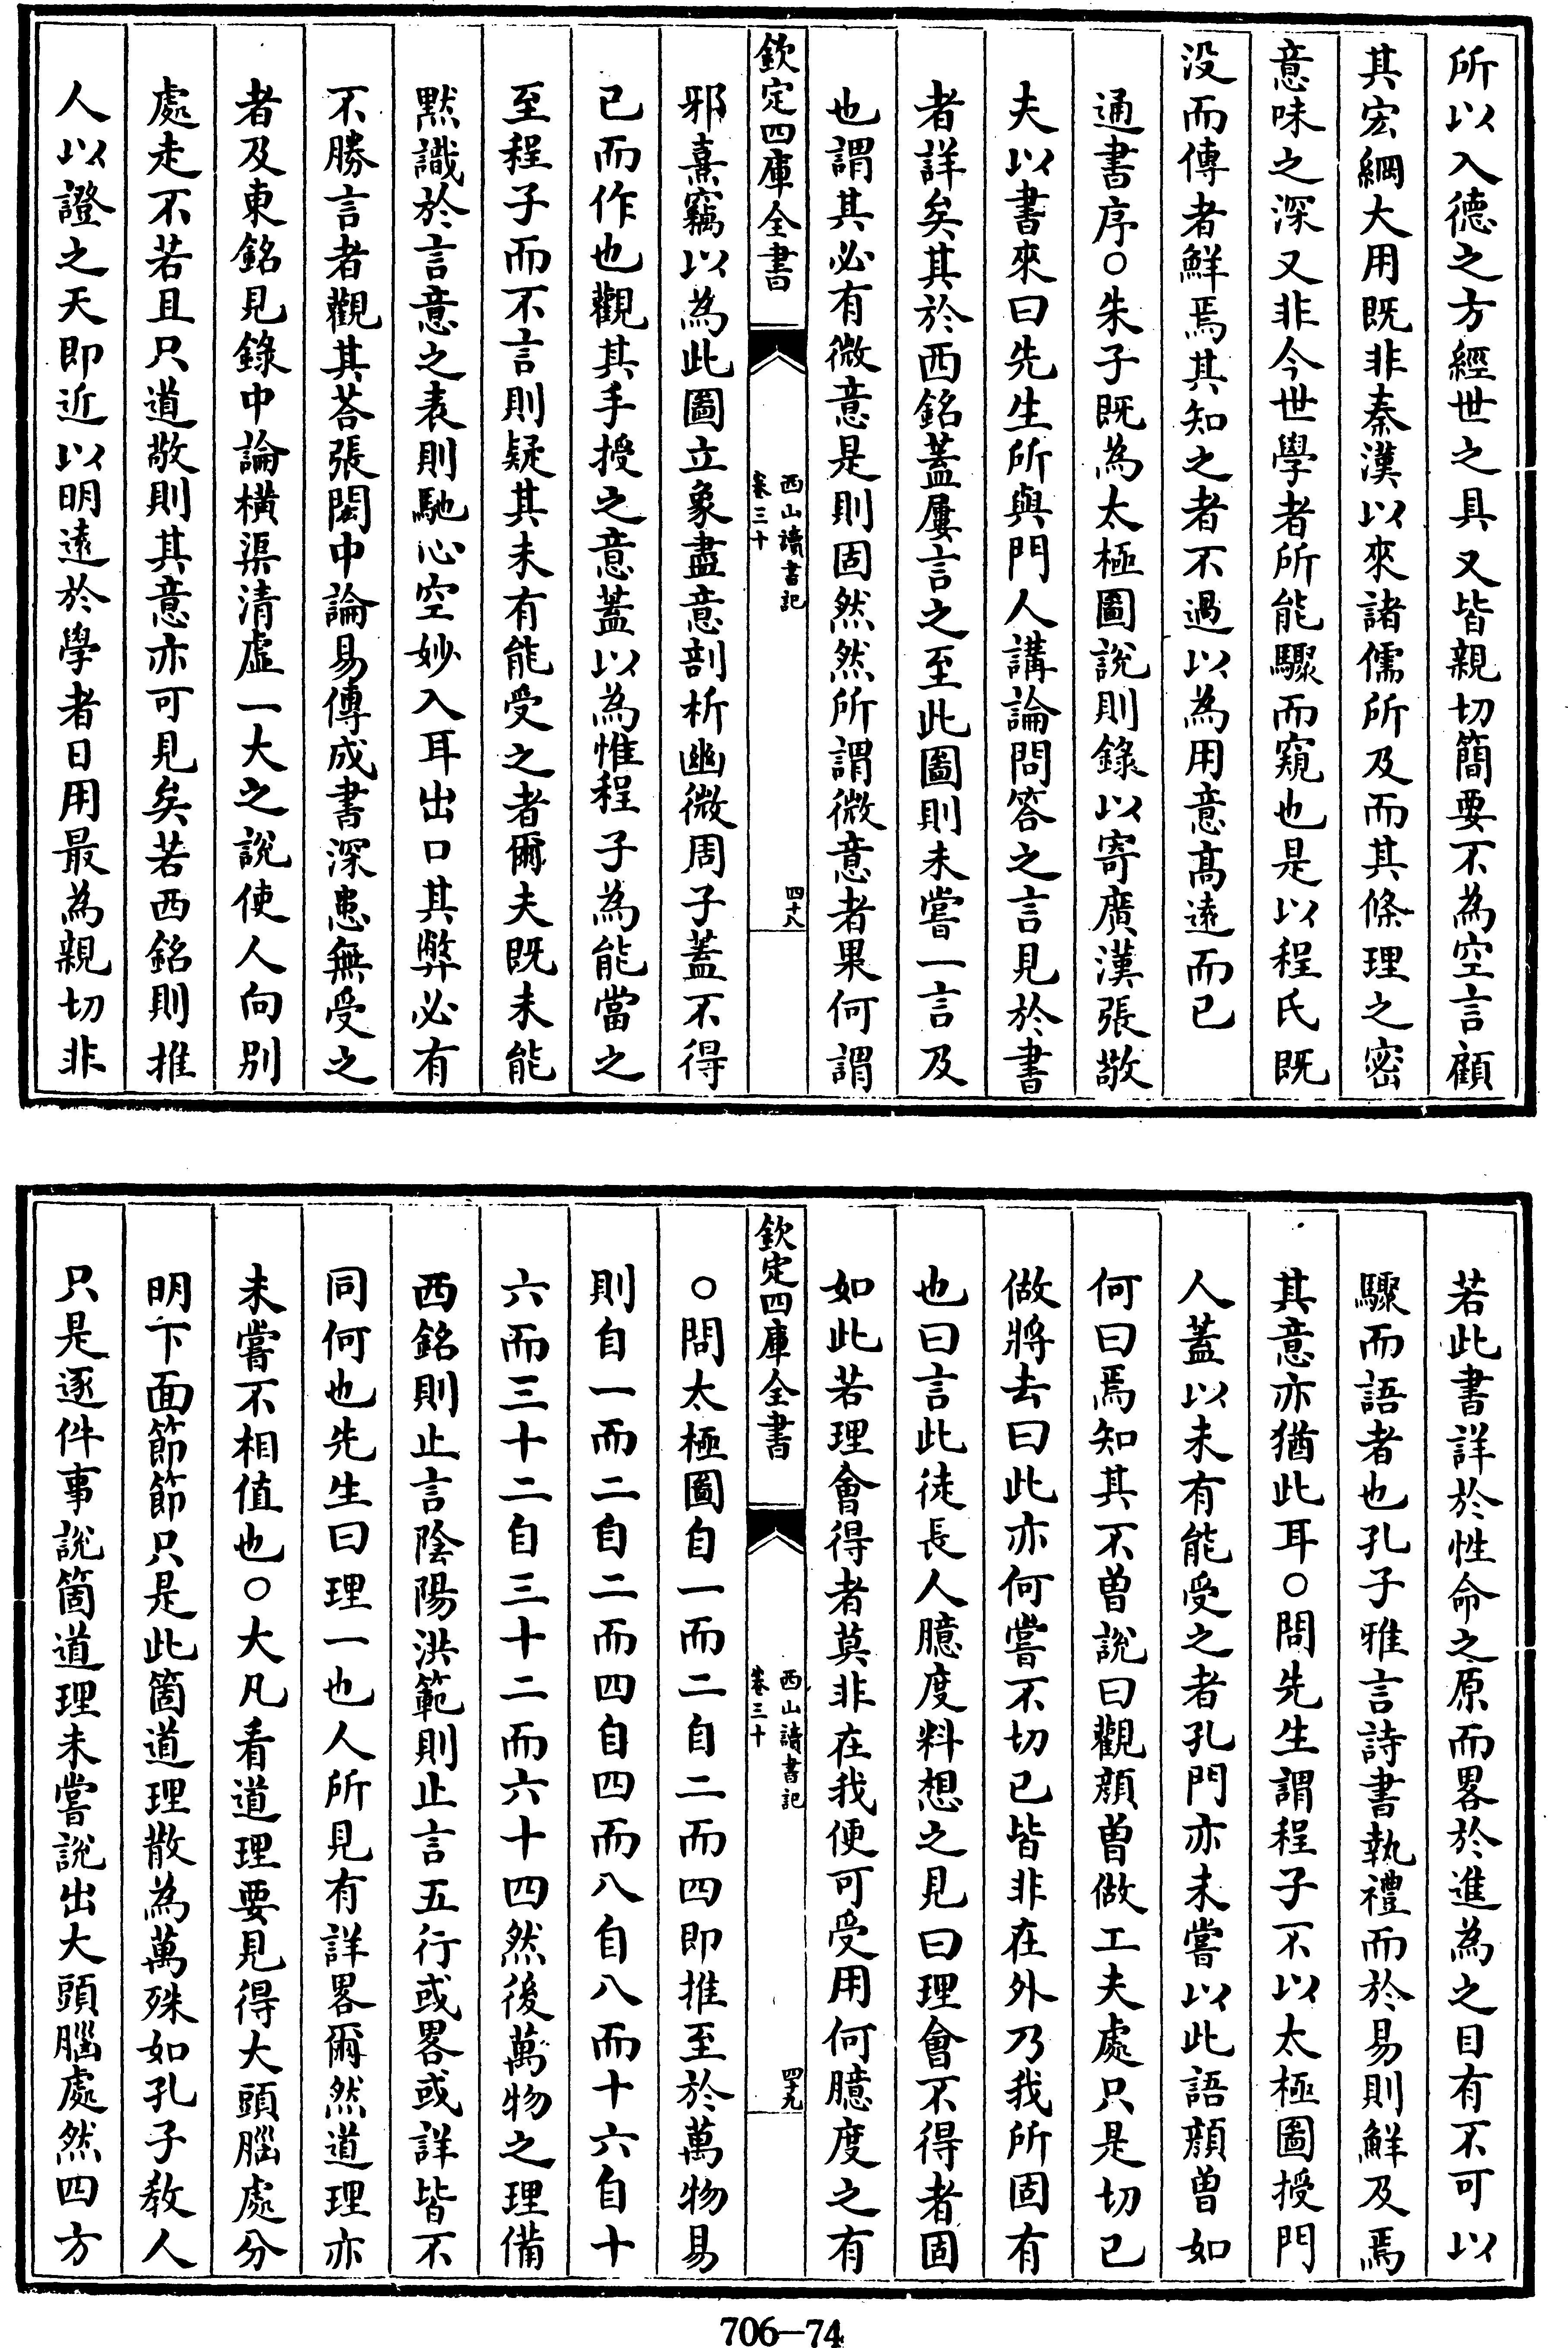 所以入德之方經世之具又皆親切簡要不為空言顧
其宏綱大用既非秦漢以來諸儒所及而其條理之密
意味之深又非今世學者所能驟而窺也是以程氏既
没而傳者鮮焉其知之者不過以為用意髙遠而已
通書序○朱子既為太極圖説則錄以寄廣漢張敬
夫以書來曰先生所與門人講論問答之言見於書
者詳矣其於西銘蓋屢言之至此圖則未嘗一言及
也謂其必有微意是則固然然所謂微意者果何謂
欽定四庫全書
西山讀書記
卷三十
四十八
邪熹竊以為此圖立象盡意剖析幽微周子蓋不得
已而作也觀其手授之意蓋以為惟程子為能當之
至程子而不言則疑其未有能受之者爾夫既未能
黙識於言意之表則馳心空妙入耳出口其弊必有
不勝言者觀其荅張閎中論易傳成書深患無受之
者及東銘見錄中論橫渠清虛一大之説使人向别
處走不若且只道敬則其意亦可見矣若西銘則推
人以證之天即近以明遠於學者日用最為親切非
若此書詳於性命之原而畧於進為之目有不可以
驟而語者也孔子雅言詩書執禮而於易則鮮及焉
其意亦猶此耳○問先生謂程子不以太極圖授門
人蓋以未有能受之者孔門亦未嘗以此語顔曽如
何曰焉知其不曽說曰觀顔曽做工夫處只是切已
做將去曰此亦何嘗不切已皆非在外乃我所固有
也曰言此徒長人臆度料想之見曰理會不得者固
如此若理會得者莫非在我便可受用何臆度之有
欽定四庫全書
西山讀書記
卷三十
四十九
○問太極圖自一而二自二而四即推至於萬物易
則自一而二自二而四自四而八自八而十六自十
六而三十二自三十二而六十四然後萬物之理備
西銘則止言陰陽洪範則止言五行或畧或詳皆不
同何也先生曰理一也人所見有詳畧爾然道理亦
未嘗不相值也○大凡看道理要見得大頭腦處分
明下面節節只是此箇道理散為萬殊如孔子教人
只是逐件事說箇道理未嘗説出大頭腦處然四方
706—74